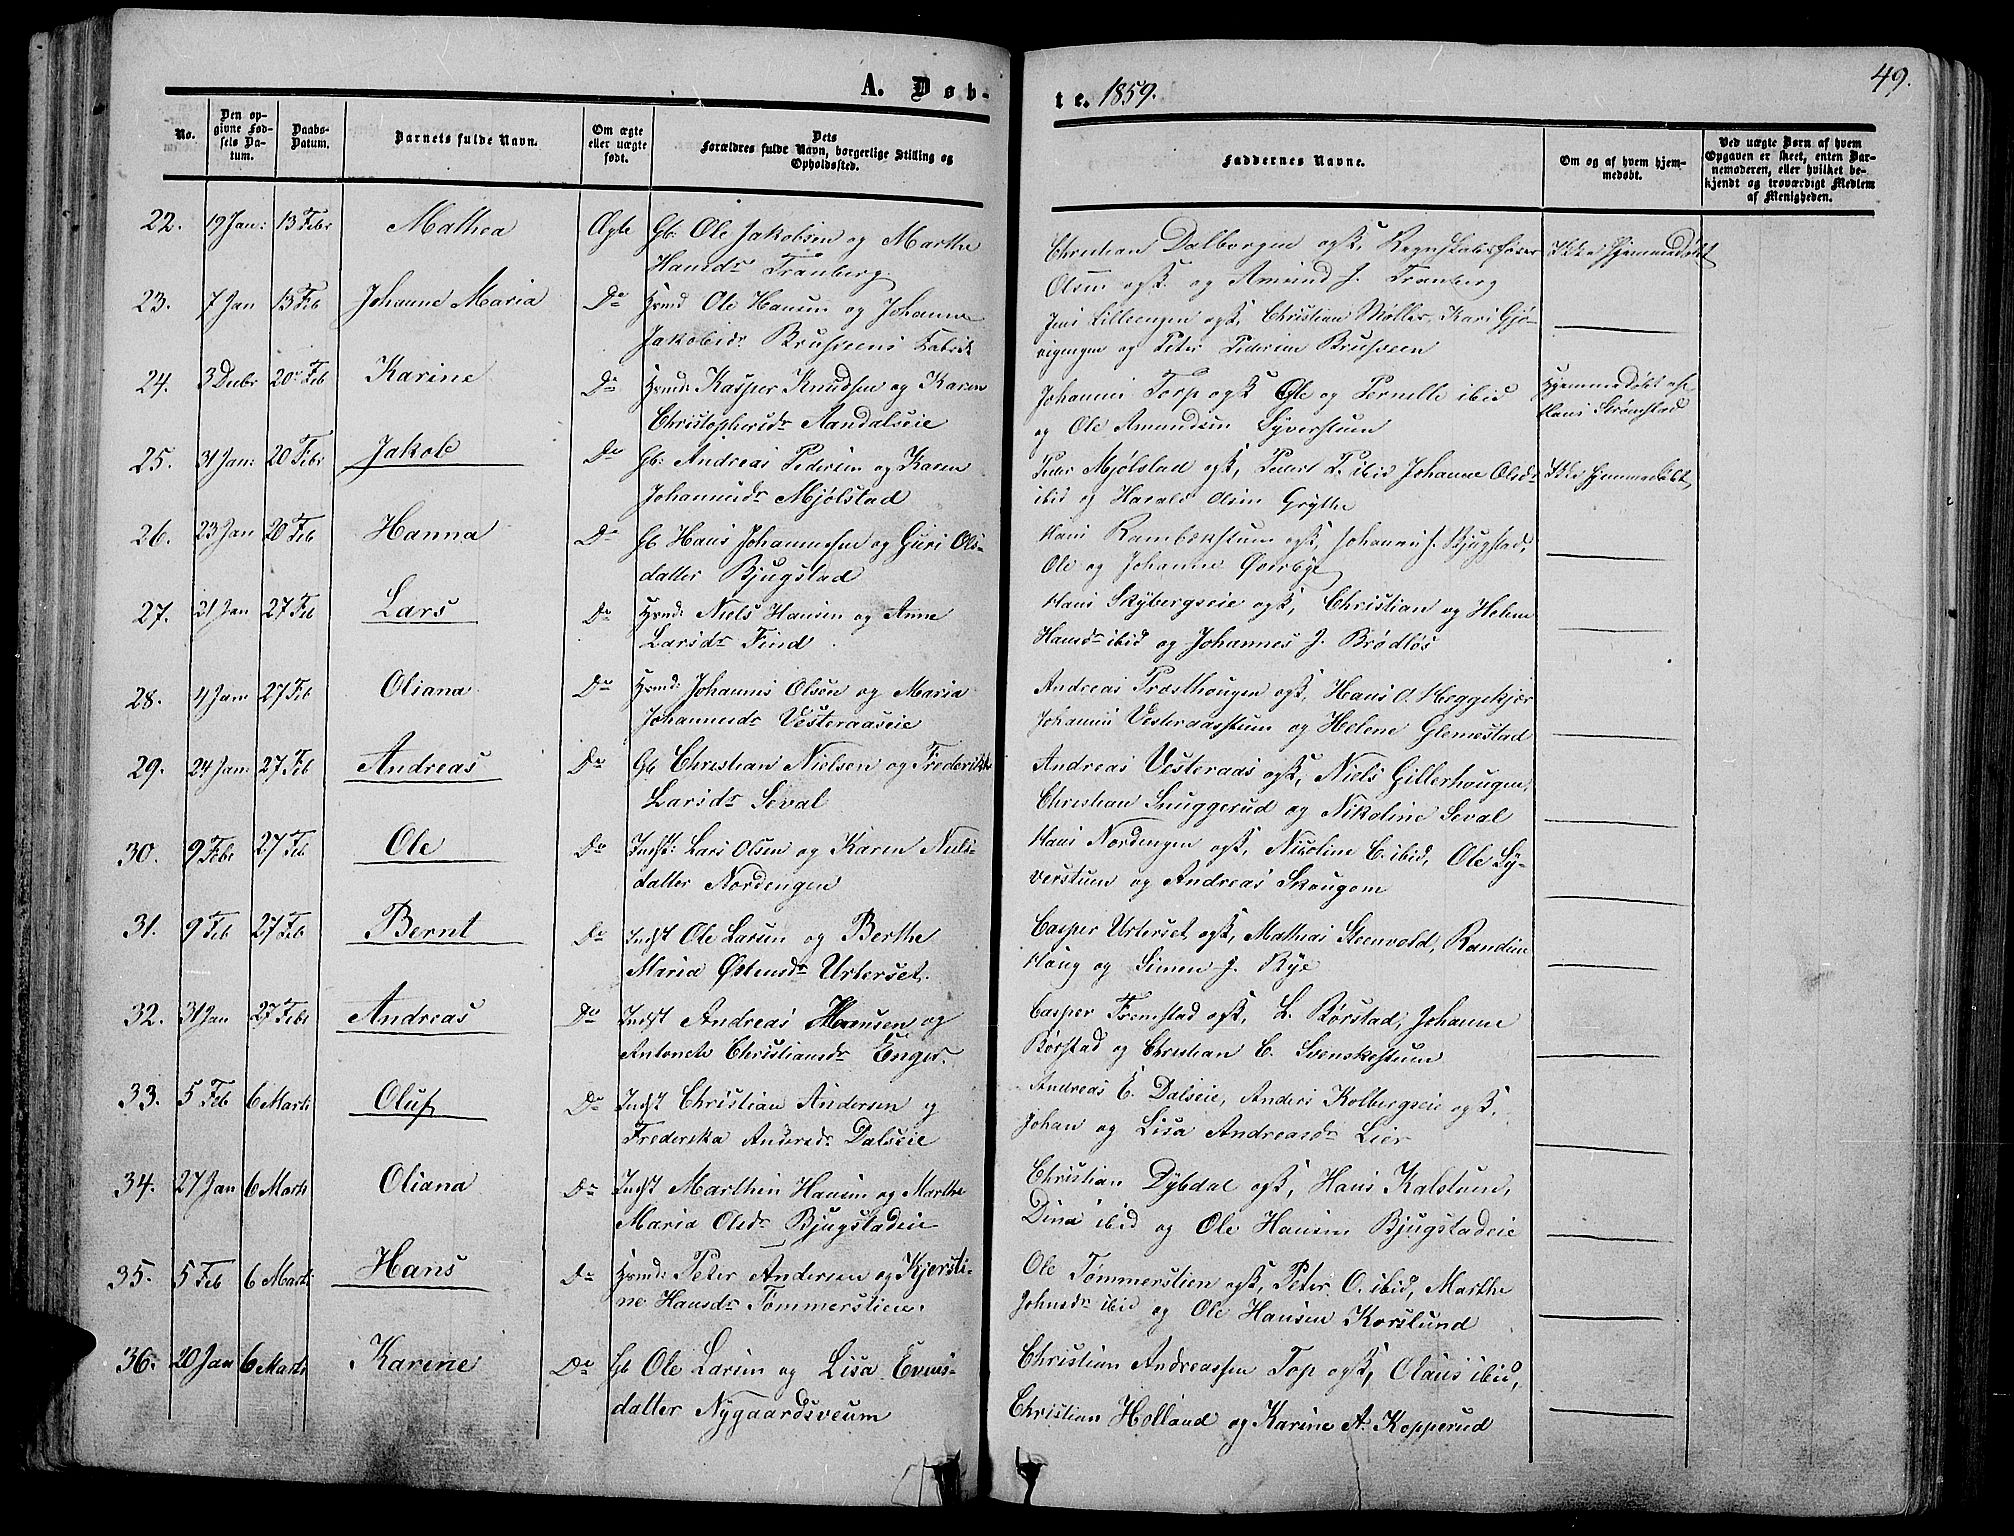 A. Døb-
te. 1859.
49.
No.
Den op-
givne Fød-
sels Da-
tum.
Daabs-
Datum.
Barnets fulde Navn.
Om ægte
eller uægte
født.
Dets
Forældres fulde Navn, borgerlige Stilling og
Opholdssted.
Faddernes Navne.
Om og af hvem hjem-
medøbt.
Ved uægte Børn af hvem
Opgaven er skeet, enten Bar-
nemoderen, eller hvilket be-
kjendt og troværdigt Medlem
af Menigheden.
22. 19 Jan: 13 Febr Mathea Ægte Gb: Ole Jakobsen og Marthe
Hansdr Tranberg.
Christian Dalborgen ogsk, Regnskabsfører
Olsen ogsk. og Amund J. Tranberg
Ikke hjemmedøbt
23. 7 Jan 13 Feb Johanne Maria Do Hmd Ole Hansen og Johanne
Jakobsdr Brusveens Fabrik
Jens Lilleengen ogsk, Christian Møller, Kari Gjø-
vigengen og Peter Pedersen Brusveen
24. 3 Decbr 20 Feb Karine Do Hmd: Kasper Knudsen og Karen
Christophersdr Aandalseie
Johannes Torp ogsk Ole og Pernille ibid
og Ole Amundsen Syverstuen
Hjemmedøbt af
Hans Strømstad
25. 31 Jan: 20 Febr Jakob Do Gb: Andreas Pedersen og Karen
Johannesdr Mjølstad
Peder Mjølstad ogsk, Peder P. ibid Johanne Olsdr
ibid og Harald Olsen Grythe
Ikke hjemmedøbt,
26. 23 Jan 20 Feb Hanna Do Gb Hans Johannesen og Guri Ols-
datter Bjugstad
Hans Rambækstuen ogsk, Johannes J. Bjugstad,
Ole og Johanne Øverbye
27. 21 Jan 27 Feb Lars Do Hmd: Niels Hansen og Anne
Larsdr Find.
Hans Skybergseie ogsk, Christian og Helene
Hansdr ibid og Johannes J. Brødløs
28. 4 Jan 27 Feb Oliana Do Hmd: Johannes Olsen og Maria
Johannesdr Vesteraaseie
Andreas Prosthougen ogsk, Hans O. Heggekjær
Johannes Vesteraasstuen og Helene Glemestad
29. 24 Jan: 27 Feb Andreas Do Gb Christian Nielsen og Frederikke
Larsdr Seval
Andreas Vesteraas ogsk, Niels Gillerhougen,
Christian Snuggerud og Nikoline Seval
30. 9 Febr 27 Feb Ole Do Indst: Lars Olsen og Karen Niels-
datter Nordengen
Hans Nordengen ogsk, Nicoline C. ibid, Ole Sy-
verstuen og Andreas Skougom
31. 9 Feb 27 Feb Bernt Do Indst Ole Larsen og Berthe
Maria Østensdr Urterset.
Casper Urterset ogsk, Mathias Steenvold, Randine
Haug og Simen J. Rye
32. 31 Jan 27 Febr Andreas Do Indst Andreas Hansen og
Antonete Christiansdr Enger.
Casper Fremstad ogsk, L. Børstad, Johanne
Børstad og Christian C. Svenskestuen
33. 5 Feb 6 Marts Oluf Do Indst Christian Andersen og
Frederikka Andersdr Dalseie
Andreas E. Dalseie, Anders Kolbergseie ogsk,
Johan og Lisa Andreasdr Lier
34. 27 Jan 6 Marts Oliana Do Indst Marthin Hansen og Marthe
Maria Olsdr Bjugstadeie
Christian Dybdal ogsk, Hans Kalstuen,
Dina ibid og Ole Hansen Bjugstadeie
35. 5 Feb 6 Marts Hans Do Hmd: Peter Andersen og Kjersti-
ne Hansdr Tømmerstien.
Ole Tømmerstien ogsk, Peter O. ibid, Marthe
Johnsdr ibid og Ole Hansen Korslund
36. 20 Jan 6 Marts Karine Do Gb Ole Larsen og Lisa Evens-
datter Nygaardsveum
Christian Andreassen Top ogsk, Olaus ibid,
Christian Holland og Karine A. Kopperud